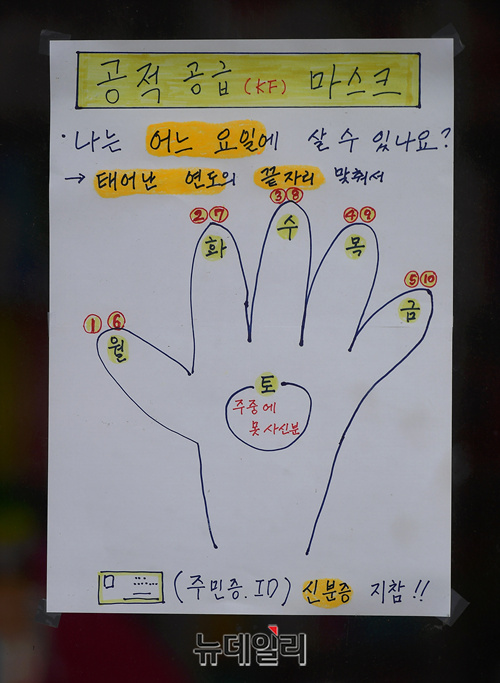 공적 공급 (KF) 마스크
· 나는 어느 요일에 살 수 있나요?
→ 태어난 연도의 끝자리 맞춰서
③⑧
수
②⑦
화
④⑨
목
⑤⑩
금
①⑥
월
토
주중에
못 사신분
(주민증. ID) 신분증 지참!!
뉴데일리